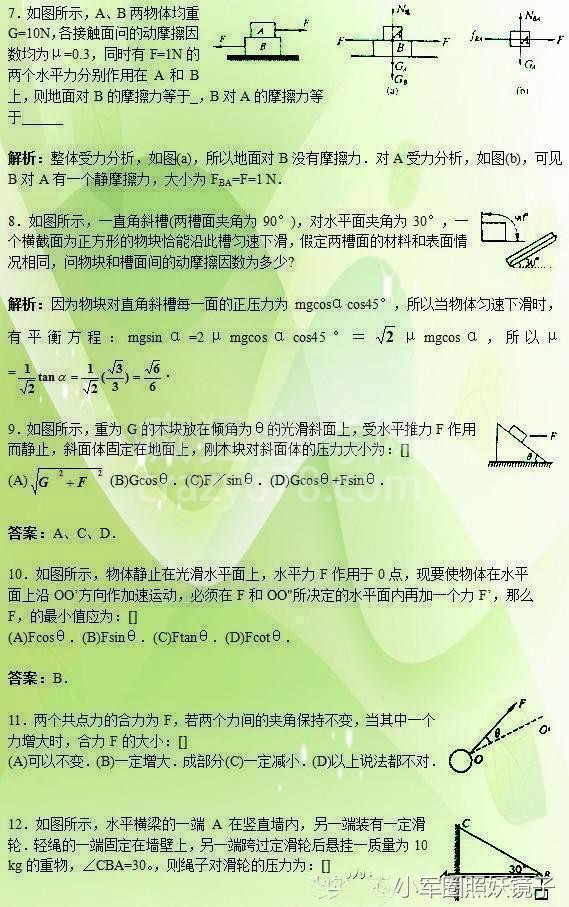 7．如图所示，A、B两物体均重
G=10N，各接触面问的动摩擦因
数均为μ=0.3，同时有F=1N的
两个水平力分别作用在A和B
上，则地面对B的摩擦力等于_，B对A的摩擦力等
于______
F
A
B
F
N地
F
A
B
F
GA
GB
(a)
NBA
fBA
A
F
GA
(b)
解析：整体受力分析，如图(a)，所以地面对B没有摩擦力．对A受力分析，如图(b)，可见
B对A有一个静摩擦力，大小为FBA=F=1 N．
8．如图所示，一直角斜槽(两槽面夹角为90°)，对水平面夹角为30°，一
个横截面为正方形的物块恰能沿此槽匀速下滑，假定两槽面的材料和表面情
况相同，问物块和槽面间的动摩擦因数为多少?
30°
解析：因为物块对直角斜槽每一面的正压力为mgcosα cos45°，所以当物体匀速下滑时，
有平衡方程：mgsinα=2μmgcosαcos45°＝√2μmgcosα，所以μ
=1/√2 tanα=1/√2(√3/3)=√6/6．
9．如图所示，重为G的木块放在倾角为θ的光滑斜面上，受水平推力F作用
而静止，斜面体固定在地面上，刚木块对斜面体的压力大小为：[]
F
θ
(A)√G²+F² (B)Gcosθ．(C)F／sinθ．(D)Gcosθ+Fsinθ．
答案：A、C、D．
10．如图所示，物体静止在光滑水平面上，水平力F作用于0点，现要使物体在水平
面上沿OO'方向作加速运动，必须在F和OO"所决定的水平面内再加一个力F'，那么
F，的最小值应为：[]
(A)Fcosθ．(B)Fsinθ．(C)Ftanθ．(D)Fcotθ．
答案：B．
11．两个共点力的合力为F，若两个力间的夹角保持不变，当其中一个
力增大时，合力F的大小：[]
(A)可以不变．(B)一定增大．成部分(C)一定减小．(D)以上说法都不对．
F
θ
O
O'
12．如图所示，水平横梁的一端 A 在竖直墙内，另一端装有一定滑
轮．轻绳的一端固定在墙壁上，另一端跨过定滑轮后悬挂一质量为10
kg的重物，∠CBA=30。，则绳子对滑轮的压力为：[]
C
30°
A
B
小军圈照妖镜子